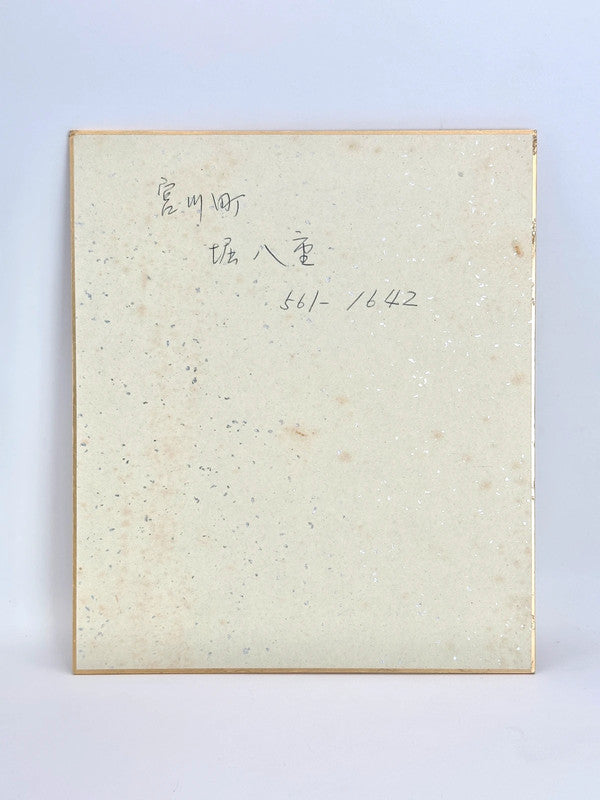 宮川町
堀八重
561-1642